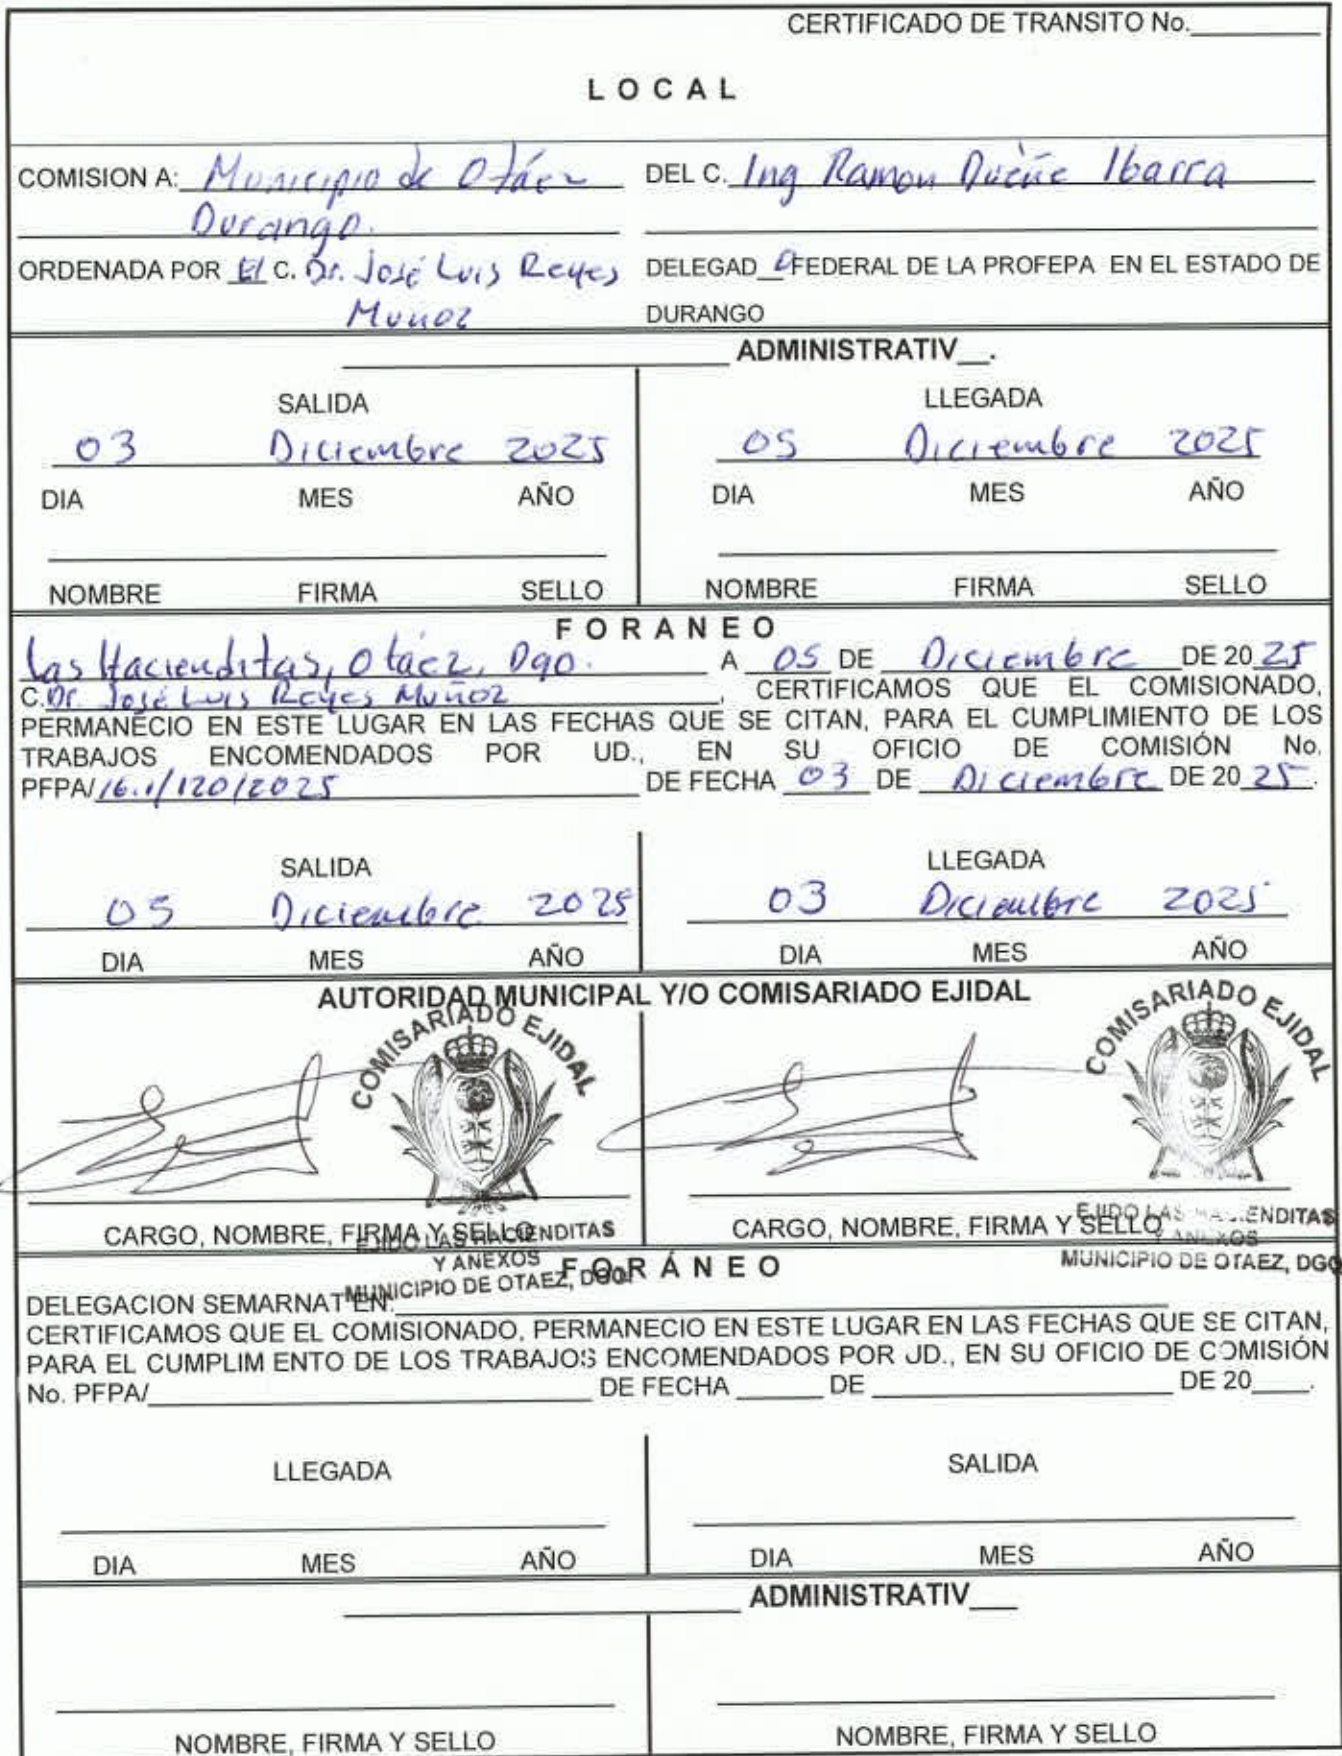 CERTIFICADO DE TRANSITO No.
LOCAL
COMISION A: Municipio de Otáez DEL C. Ing Ramon Dueñe Ibarra
Durango.
ORDENADA POR El C. Dr. José Luis Reyes DELEGAD O FEDERAL DE LA PROFEPA EN EL ESTADO DE
Muñoz DURANGO
ADMINISTRATIV__.
SALIDA LLEGADA
03 Diciembre 2025 05 Diciembre 2025
DIA MES AÑO DIA MES AÑO
NOMBRE FIRMA SELLO NOMBRE FIRMA SELLO
FORANEO
Las Hacienditas, Otáez, Dgo. A 05 DE Diciembre DE 20 25
C. Dr. José Luis Reyes Muñoz, CERTIFICAMOS QUE EL COMISIONADO,
PERMANECIO EN ESTE LUGAR EN LAS FECHAS QUE SE CITAN, PARA EL CUMPLIMIENTO DE LOS
TRABAJOS ENCOMENDADOS POR UD., EN SU OFICIO DE COMISIÓN No.
PFPA/16.1/120/2025 DE FECHA 03 DE Diciembre DE 20 25.
SALIDA LLEGADA
05 Diciembre 2025 03 Diciembre 2025
DIA MES AÑO DIA MES AÑO
AUTORIDAD MUNICIPAL Y/O COMISARIADO EJIDAL
COMISARIADO EJIDAL COMISARIADO EJIDAL
CARGO, NOMBRE, FIRMA Y SELLO CARGO, NOMBRE, FIRMA Y SELLO
EJIDO LAS HACIENDITAS EJIDO LAS HACIENDITAS
Y ANEXOS Y ANEXOS
MUNICIPIO DE OTAEZ, DGO. MUNICIPIO DE OTAEZ, DGO
FORÁNEO
DELEGACION SEMARNAT EN:
CERTIFICAMOS QUE EL COMISIONADO, PERMANECIO EN ESTE LUGAR EN LAS FECHAS QUE SE CITAN,
PARA EL CUMPLIM ENTO DE LOS TRABAJOS ENCOMENDADOS POR UD., EN SU OFICIO DE COMISIÓN
No. PFPA/ DE FECHA DE DE 20 .
LLEGADA SALIDA
DIA MES AÑO DIA MES AÑO
ADMINISTRATIV__
NOMBRE, FIRMA Y SELLO NOMBRE, FIRMA Y SELLO